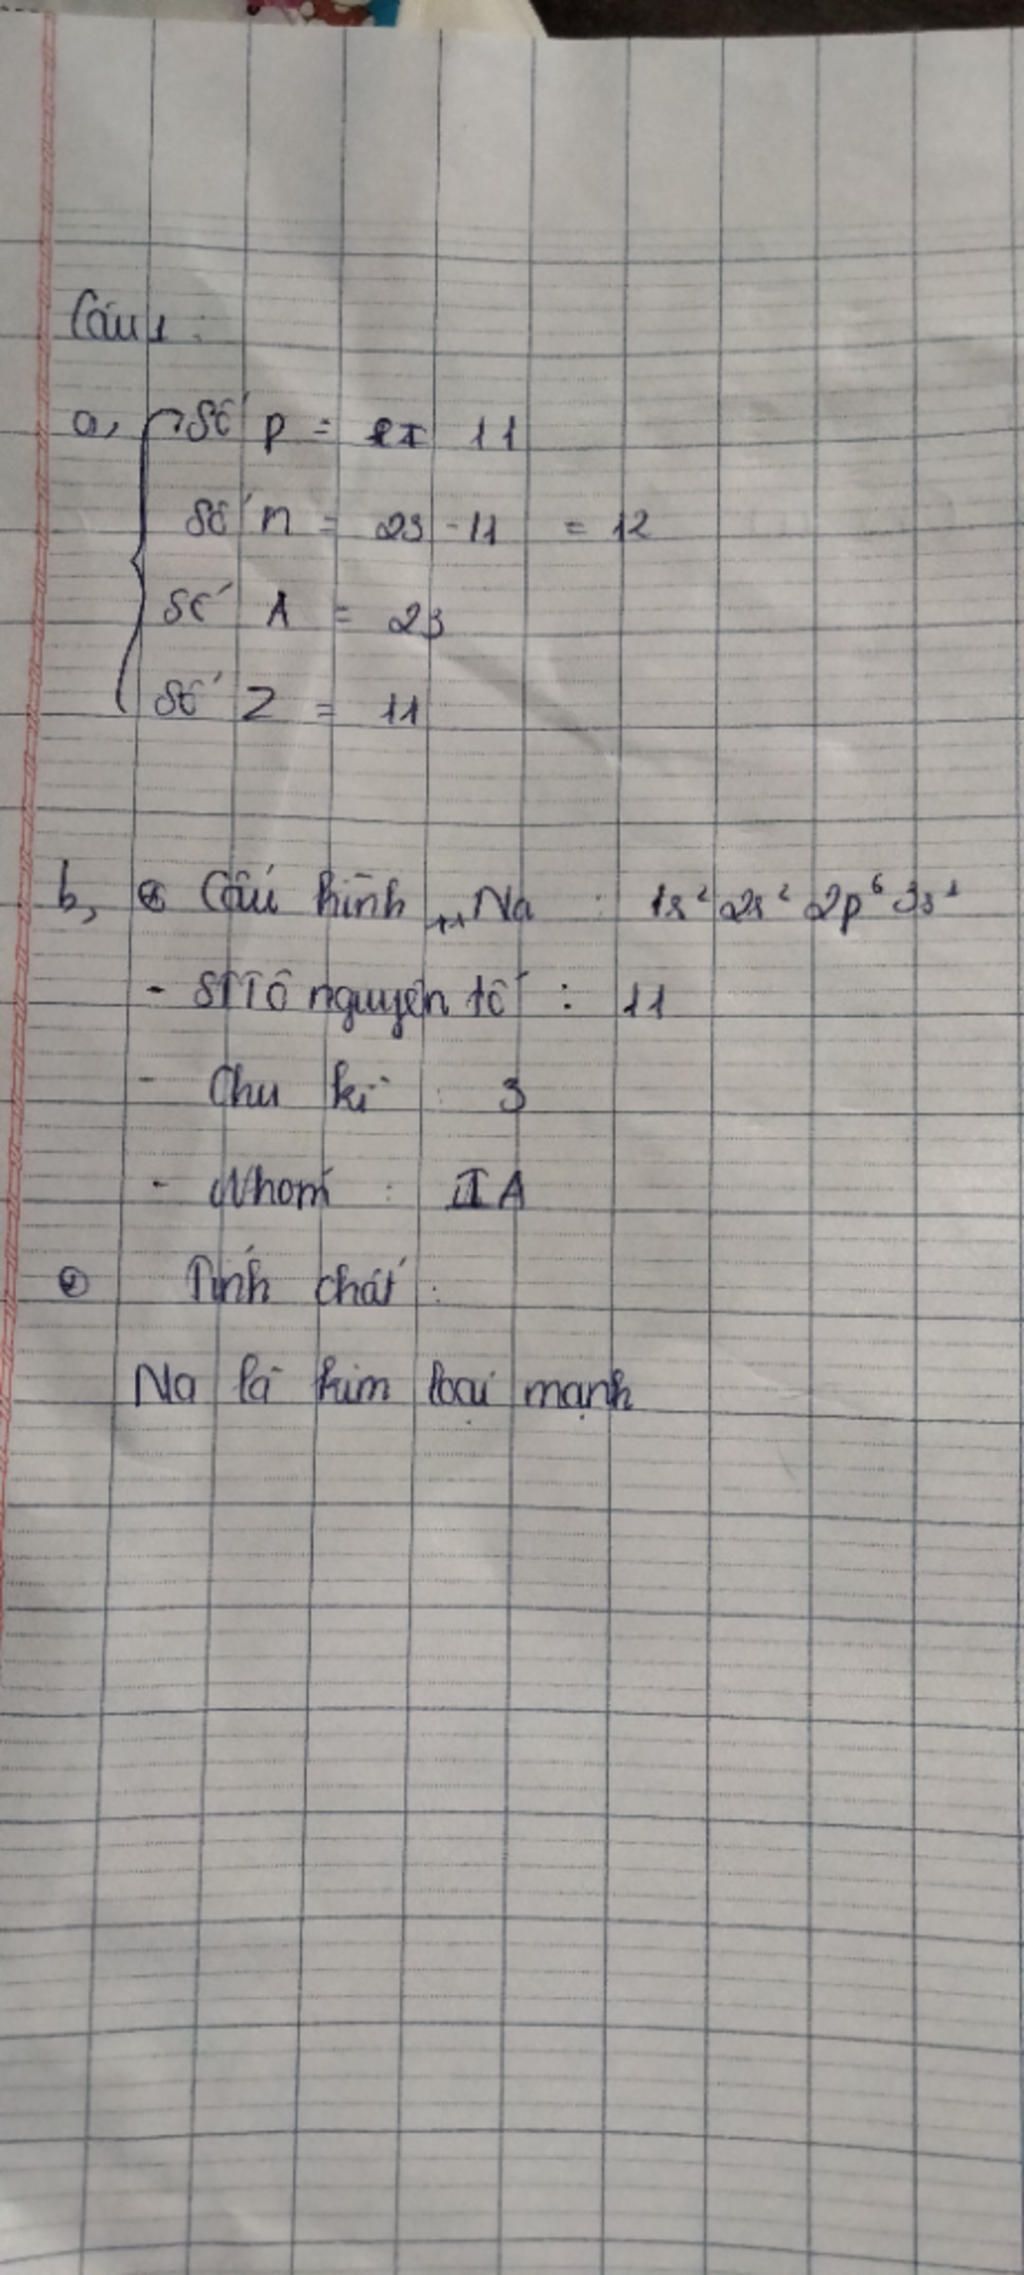 Câu 1:
a, Số p = 11
Số n = 23 - 11 = 12
Số A = 23
Số Z = 11
b, Cấu hình ₁₁Na : 1s² 2s² 2p⁶ 3s¹
- STT ô nguyên tố : 11
- Chu kì : 3
- Nhóm : IA
Tính chất :
Na là kim loại mạnh